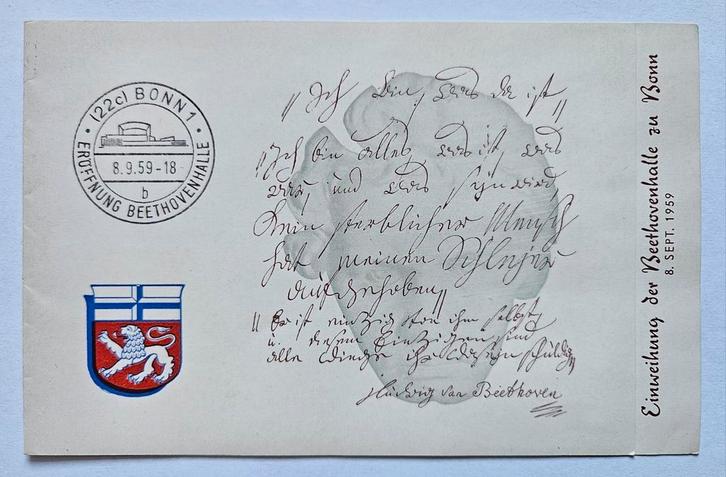 (22c) BONN 1
8.9.59-18
b
ERÖFFNUNG BEETHOVENHALLE
„Ich bin, was da ist„
„Ich bin alles, was ist, was
war, und was seyn wird
Kein sterblicher Mensch
hat meinen Schleyer
aufgehoben„
„Er ist einzig von ihm selbst,
u. diesem Einzigen sind
alle Dinge ihr Daseyn schuldig„
Ludwig van Beethoven
Einweihung der Beethovenhalle zu Bonn
8. SEPT. 1959